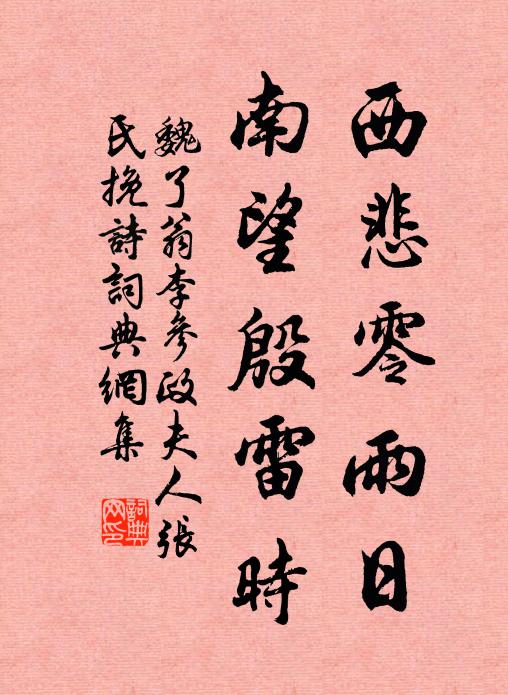 西悲零雨日
南望殷雷時
魏了翁李參政夫人張
氏挽詩詞典網集
詞典网印